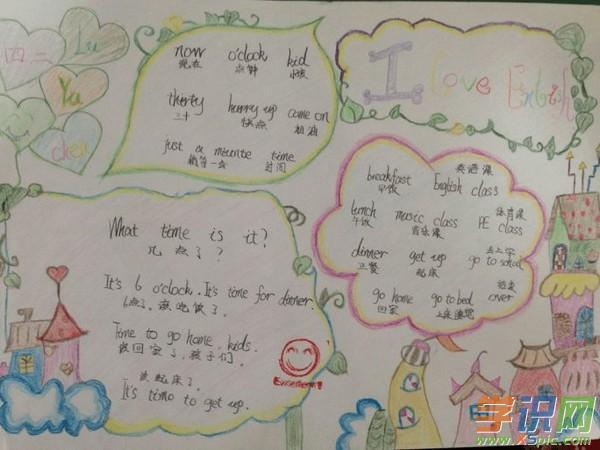 四二
Lu
Yu
chen
now o'clock kid
现在 点钟 小孩
thirty hurry up come on
三十 快点
just a miunte time
稍等一会 时间
I love English
breakfast English class
早饭 英语课
lunch music class PE class
午饭 音乐课 体育课
dinner get up go to school
正餐 起床 去上学
go home go to bed over
回家 上床睡觉 结束
What time is it?
几点了?
It's 6 o'clock. It's time for dinner.
6点了。该吃饭了。
Time to go home, kids.
该回家了,孩子们。
该起床了。
It's time to get up.
Excellent!
学识网
www.XSpic.com